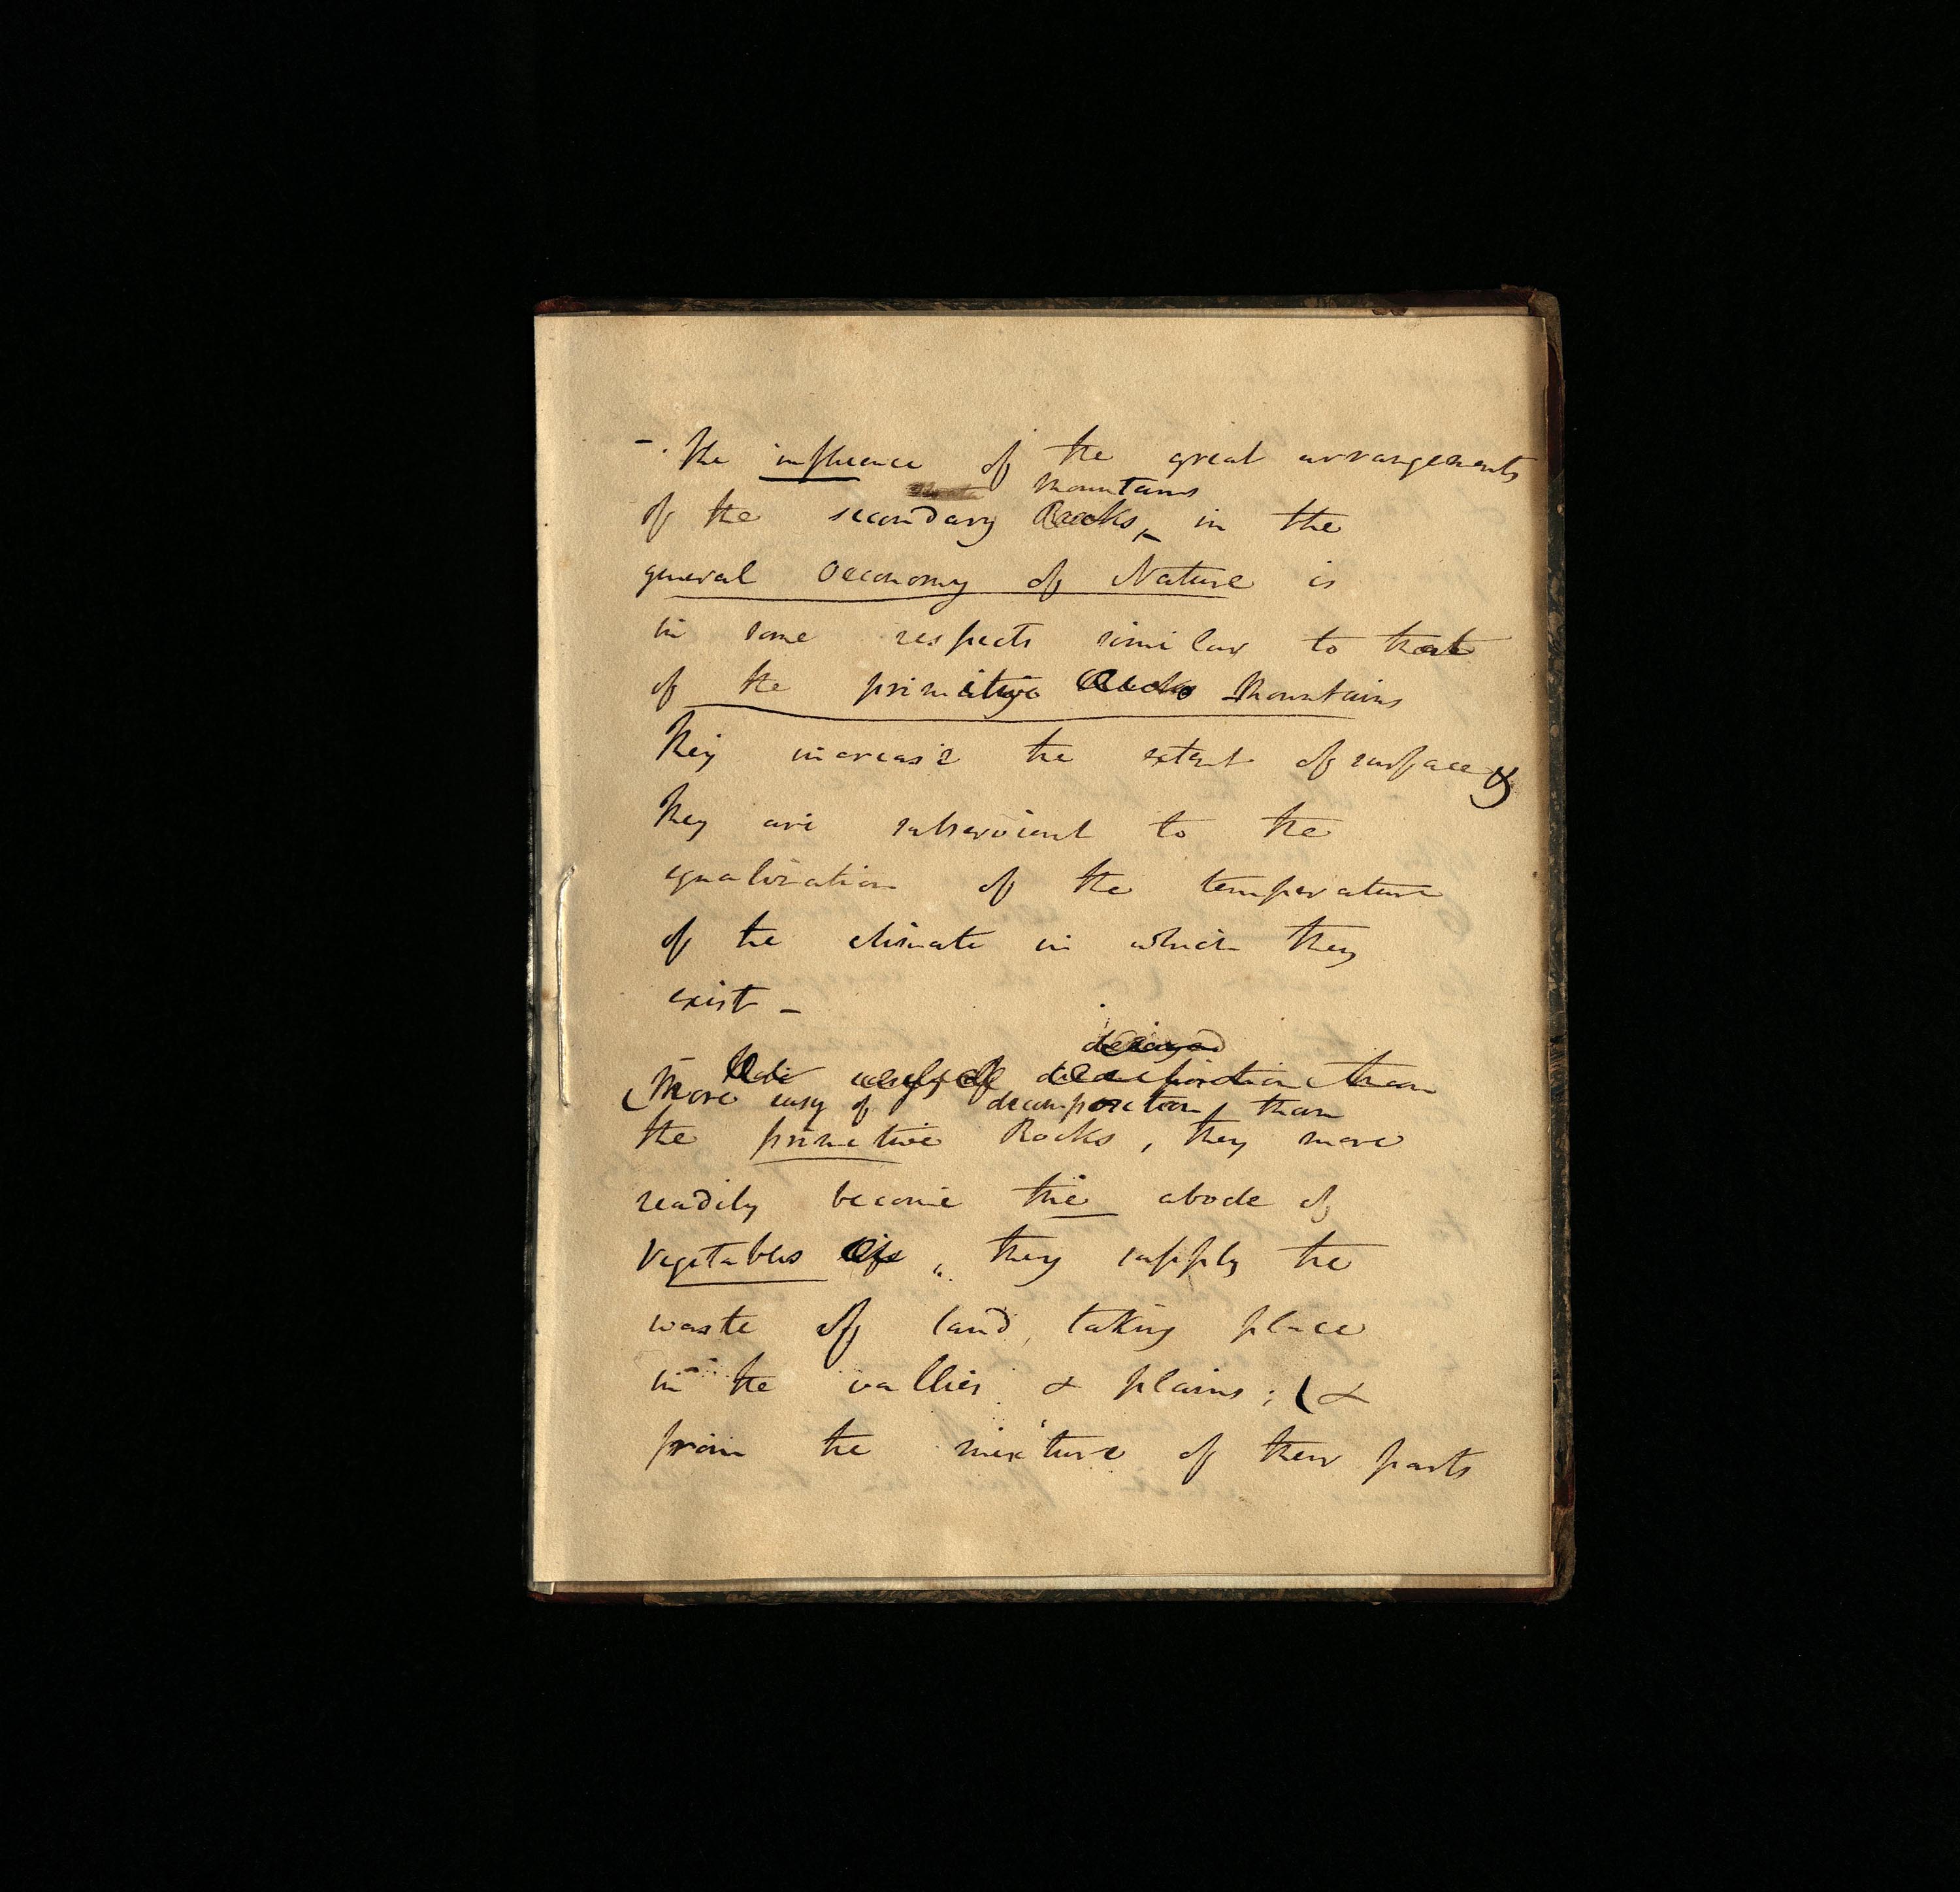 –. The influence of the great arrangements
mountains
of the secondary Rocks, in the
general Oeconomy of Nature is
in some respects similar to that
of the primitive Rocks Mountains
They increase the extent of surface &
They are subservient to the
equalization of the temperature
of the climate in which they
exist –
decayed
easily of decomposition than
(More easy of decomposition, than
the primitive Rocks, they more
readily become the abode of
vegetables life, they supply the
waste of land, taking place
in the vallies & plains; (&
from the mixture of their parts